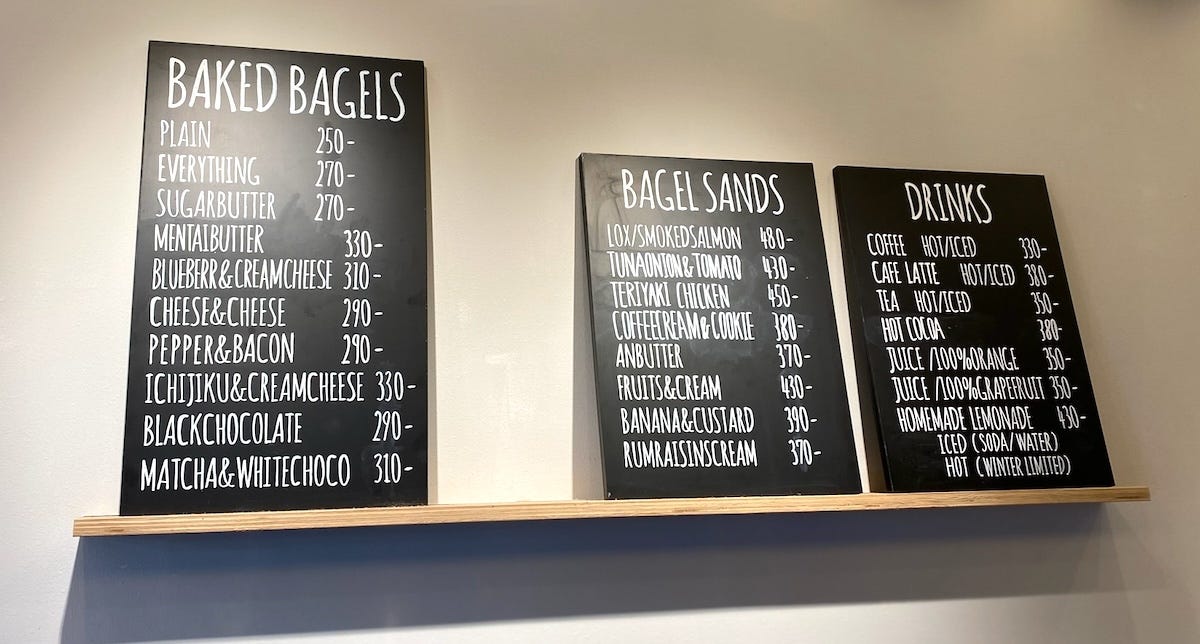 BAKED BAGELS
PLAIN 250-
EVERYTHING 270-
SUGARBUTTER 270-
MENTAIBUTTER 330-
BLUEBERR&CREAMCHEESE 310-
CHEESE&CHEESE 290-
PEPPER&BACON 290-
ICHIJIKU&CREAMCHEESE 330-
BLACKCHOCOLATE 290-
MATCHA&WHITECHOCO 310-
BAGEL SANDS
LOX/SMOKEDSALMON 480-
TUNAONION&TOMATO 430-
TERIYAKI CHICKEN 450-
COFFEECREAM&COOKIE 380-
ANBUTTER 370-
FRUITS&CREAM 430-
BANANA&CUSTARD 390-
RUMRAISINSCREAM 370-
DRINKS
COFFEE HOT/ICED 330-
CAFE LATTE HOT/ICED 380-
TEA HOT/ICED 350-
HOT COCOA 380-
JUICE /100%ORANGE 350-
JUICE /100%GRAPEFRUIT 350-
HOMEMADE LEMONADE 430-
ICED (SODA/WATER)
HOT (WINTER LIMITED)